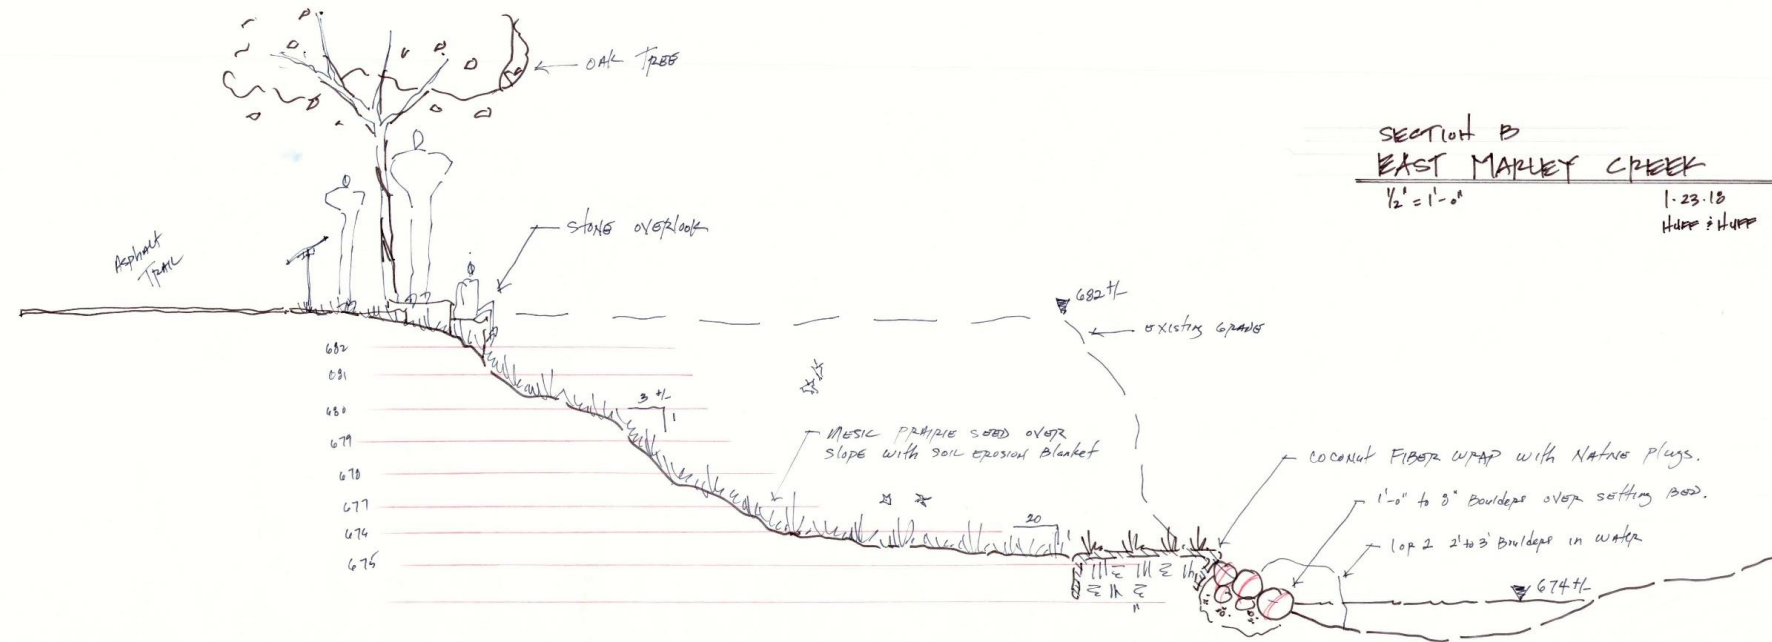 OAK TREE
SECTION B
EAST MARLEY CREEK
1/2" = 1'-0"
1.23.18
HUFF & HUFF
STONE OVERLOOK
Asphalt
TRAIL
682 +/-
EXISTING GRADE
682
681
680
679
678
677
676
675
3 +/-
1
MESIC PRAIRIE SEED OVER
SLOPE WITH SOIL EROSION Blanket
20
1
COCONUT FIBER WRAP WITH NATIVE Plugs.
Boulders OVER SETTING BED.
1 OR 2 2' to 3' Boulders in WATER
674 +/-